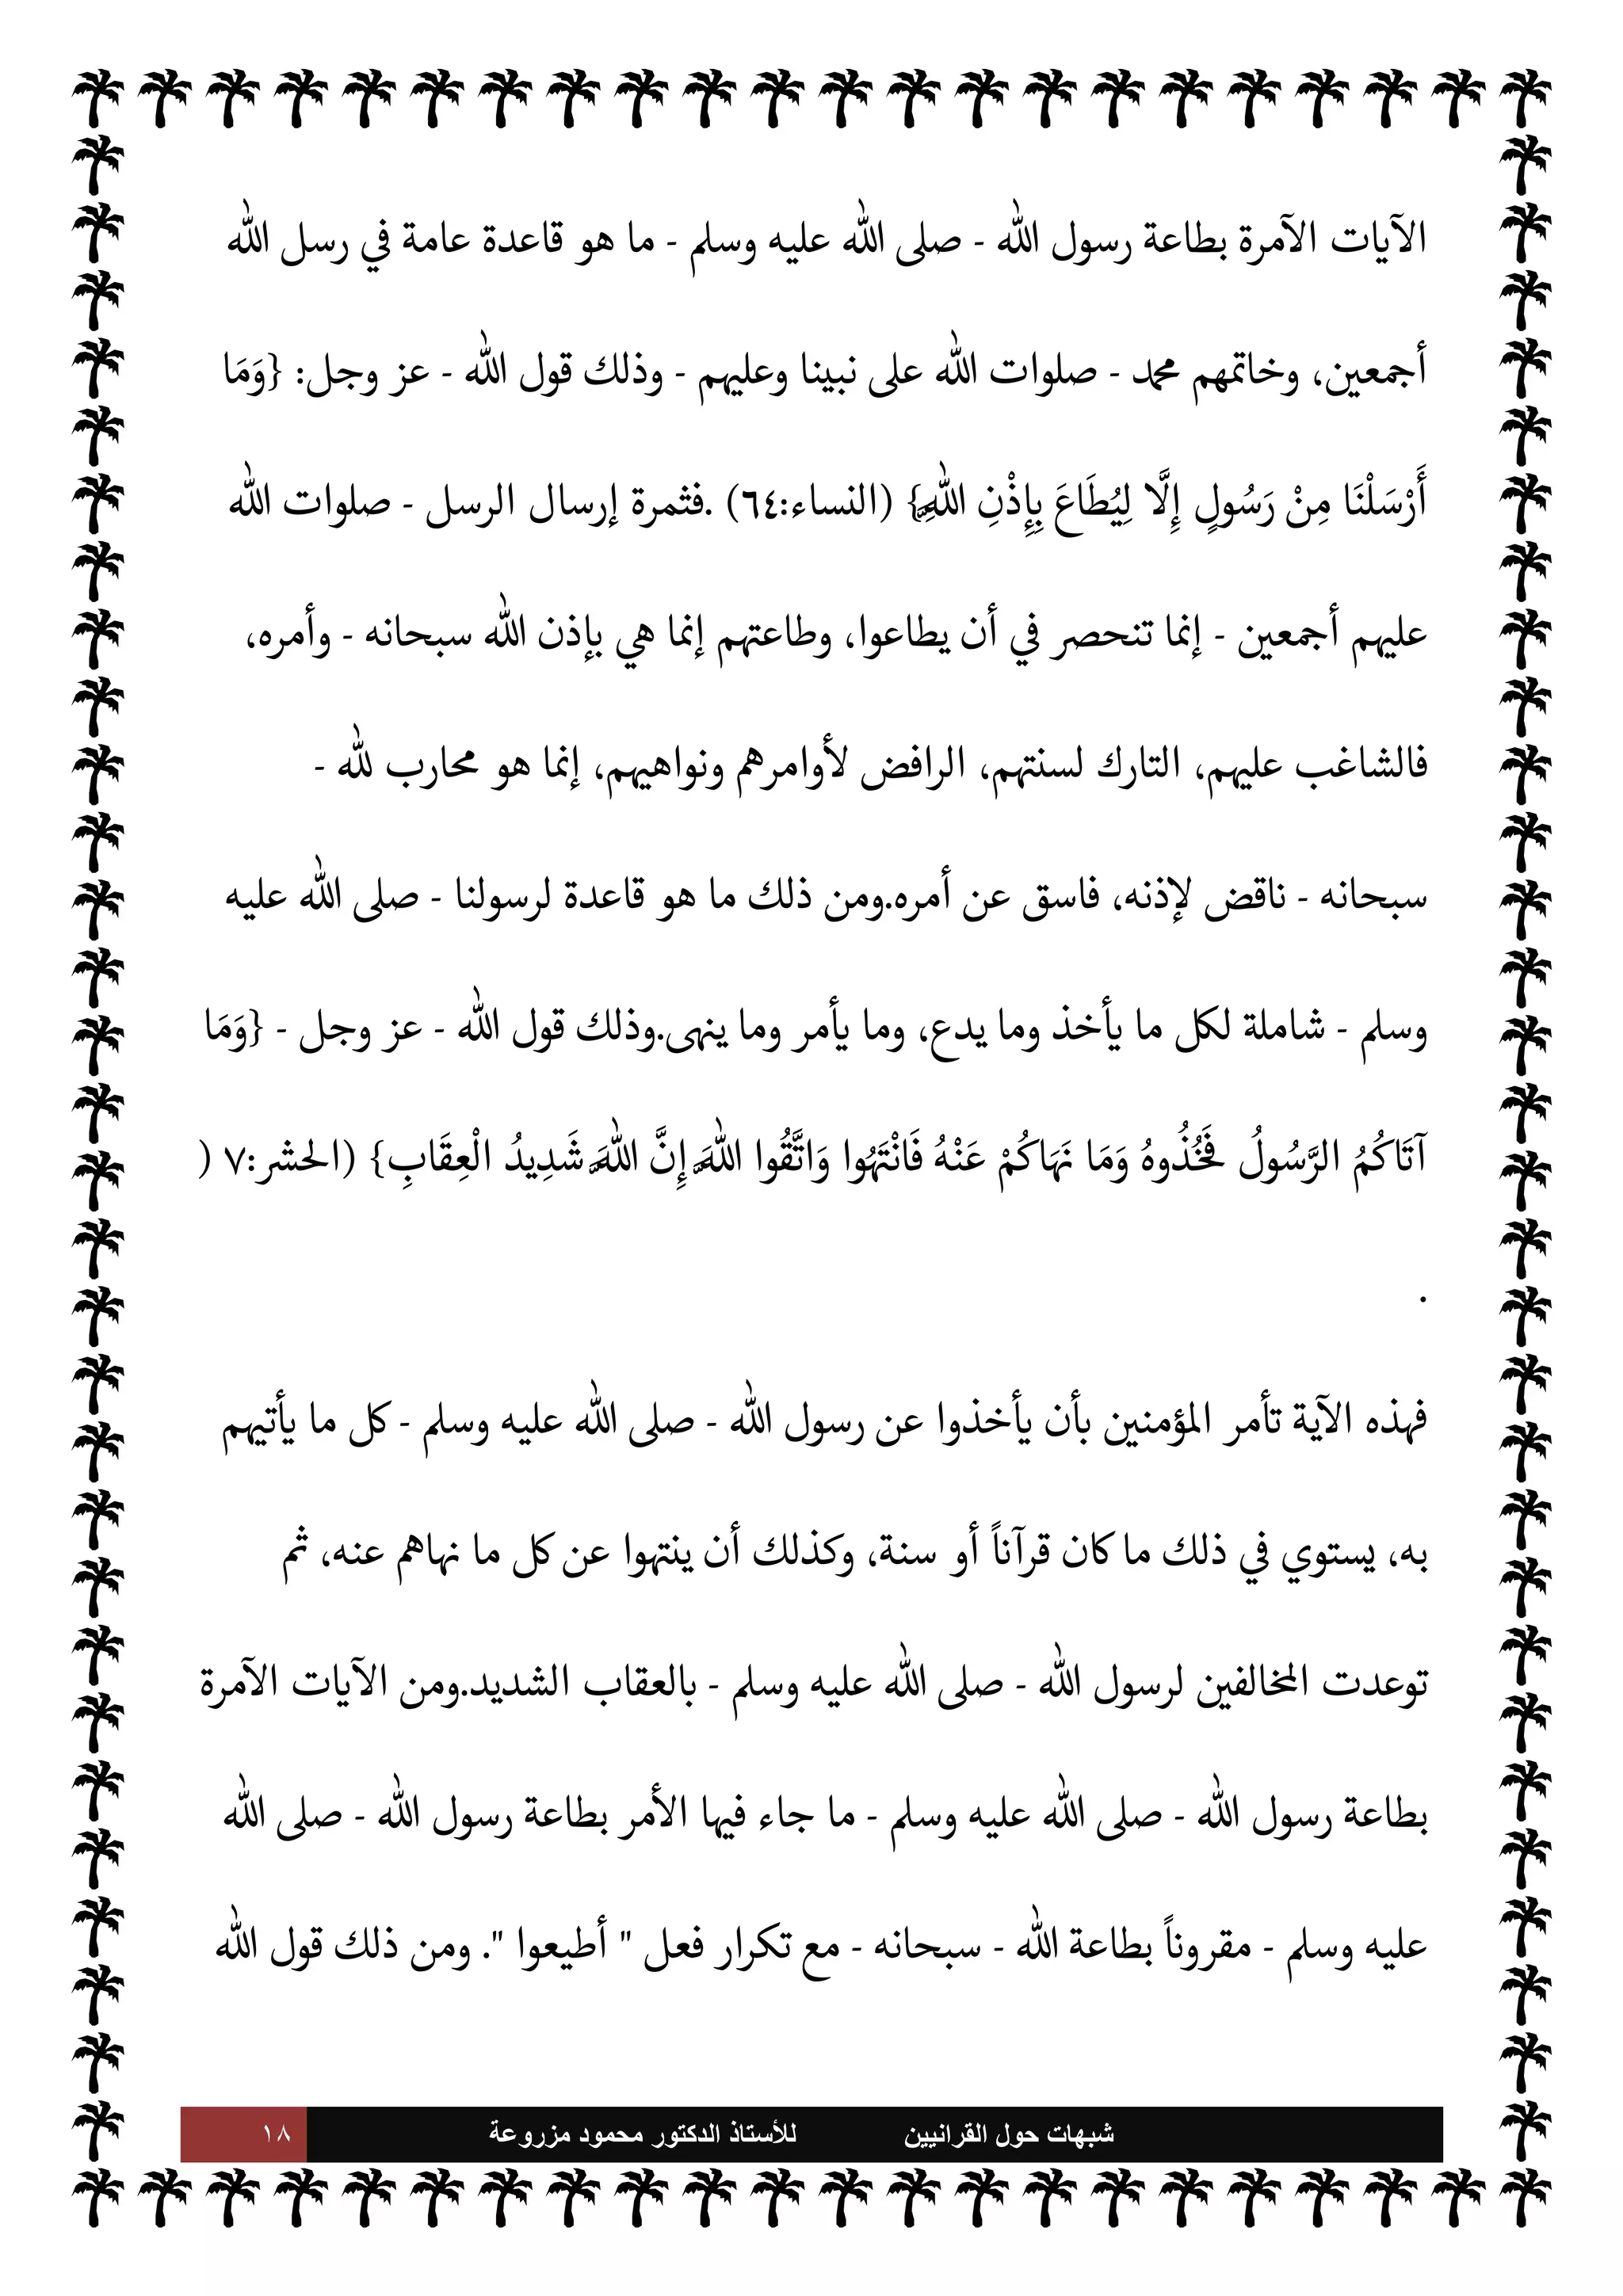 الآيات الآمرة بطاعة رسول الله - صلى الله عليه وسلم - ما هو قاعدة عامة في رسل الله
أجمعين، وخاتمهم محمد - صلوات الله على نبينا وعليهم - وذلك قول الله - عز وجل: {وَمَا
أَرْسَلْنَا مِنْ رَسُولٍ إِلَّا لِيُطَاعَ بِإِذْنِ اللَّهِ} (النساء:٦٤) .فثمرة إرسال الرسل - صلوات الله
عليهم أجمعين - إنما تنحصر في أن يطاعوا، وطاعتهم إنما هي بإذن الله سبحانه - وأمره،
فالشاغب عليهم، التارك لسنتهم، الرافض لأوامرهم ونواهيهم، إنما هو محارب لله -
سبحانه - ناقض لإذنه، فاسق عن أمره.ومن ذلك ما هو قاعدة لرسولنا - صلى الله عليه
وسلم - شاملة لكل ما يأخذ وما يدع، وما يأمر وما ينهى.وذلك قول الله - عز وجل - {وَمَا
آتَاكُمُ الرَّسُولُ فَخُذُوهُ وَمَا نَهَاكُمْ عَنْهُ فَانْتَهُوا وَاتَّقُوا اللَّهَ إِنَّ اللَّهَ شَدِيدُ الْعِقَابِ} (الحشر:٧ )
.
فهذه الآية تأمر المؤمنين بأن يأخذوا عن رسول الله - صلى الله عليه وسلم - كل ما يأتيهم
به، يستوي في ذلك ما كان قرآناً أو سنة، وكذلك أن ينتهوا عن كل ما نهاهم عنه، ثم
توعدت المخالفين لرسول الله - صلى الله عليه وسلم - بالعقاب الشديد.ومن الآيات الآمرة
بطاعة رسول الله - صلى الله عليه وسلم - ما جاء فيها الأمر بطاعة رسول الله - صلى الله
عليه وسلم - مقروناً بطاعة الله - سبحانه - مع تكرار فعل " أطيعوا ". ومن ذلك قول الله
شبهات حول القرانيين للأستاذ الدكتور محمود مزروعة ١٨